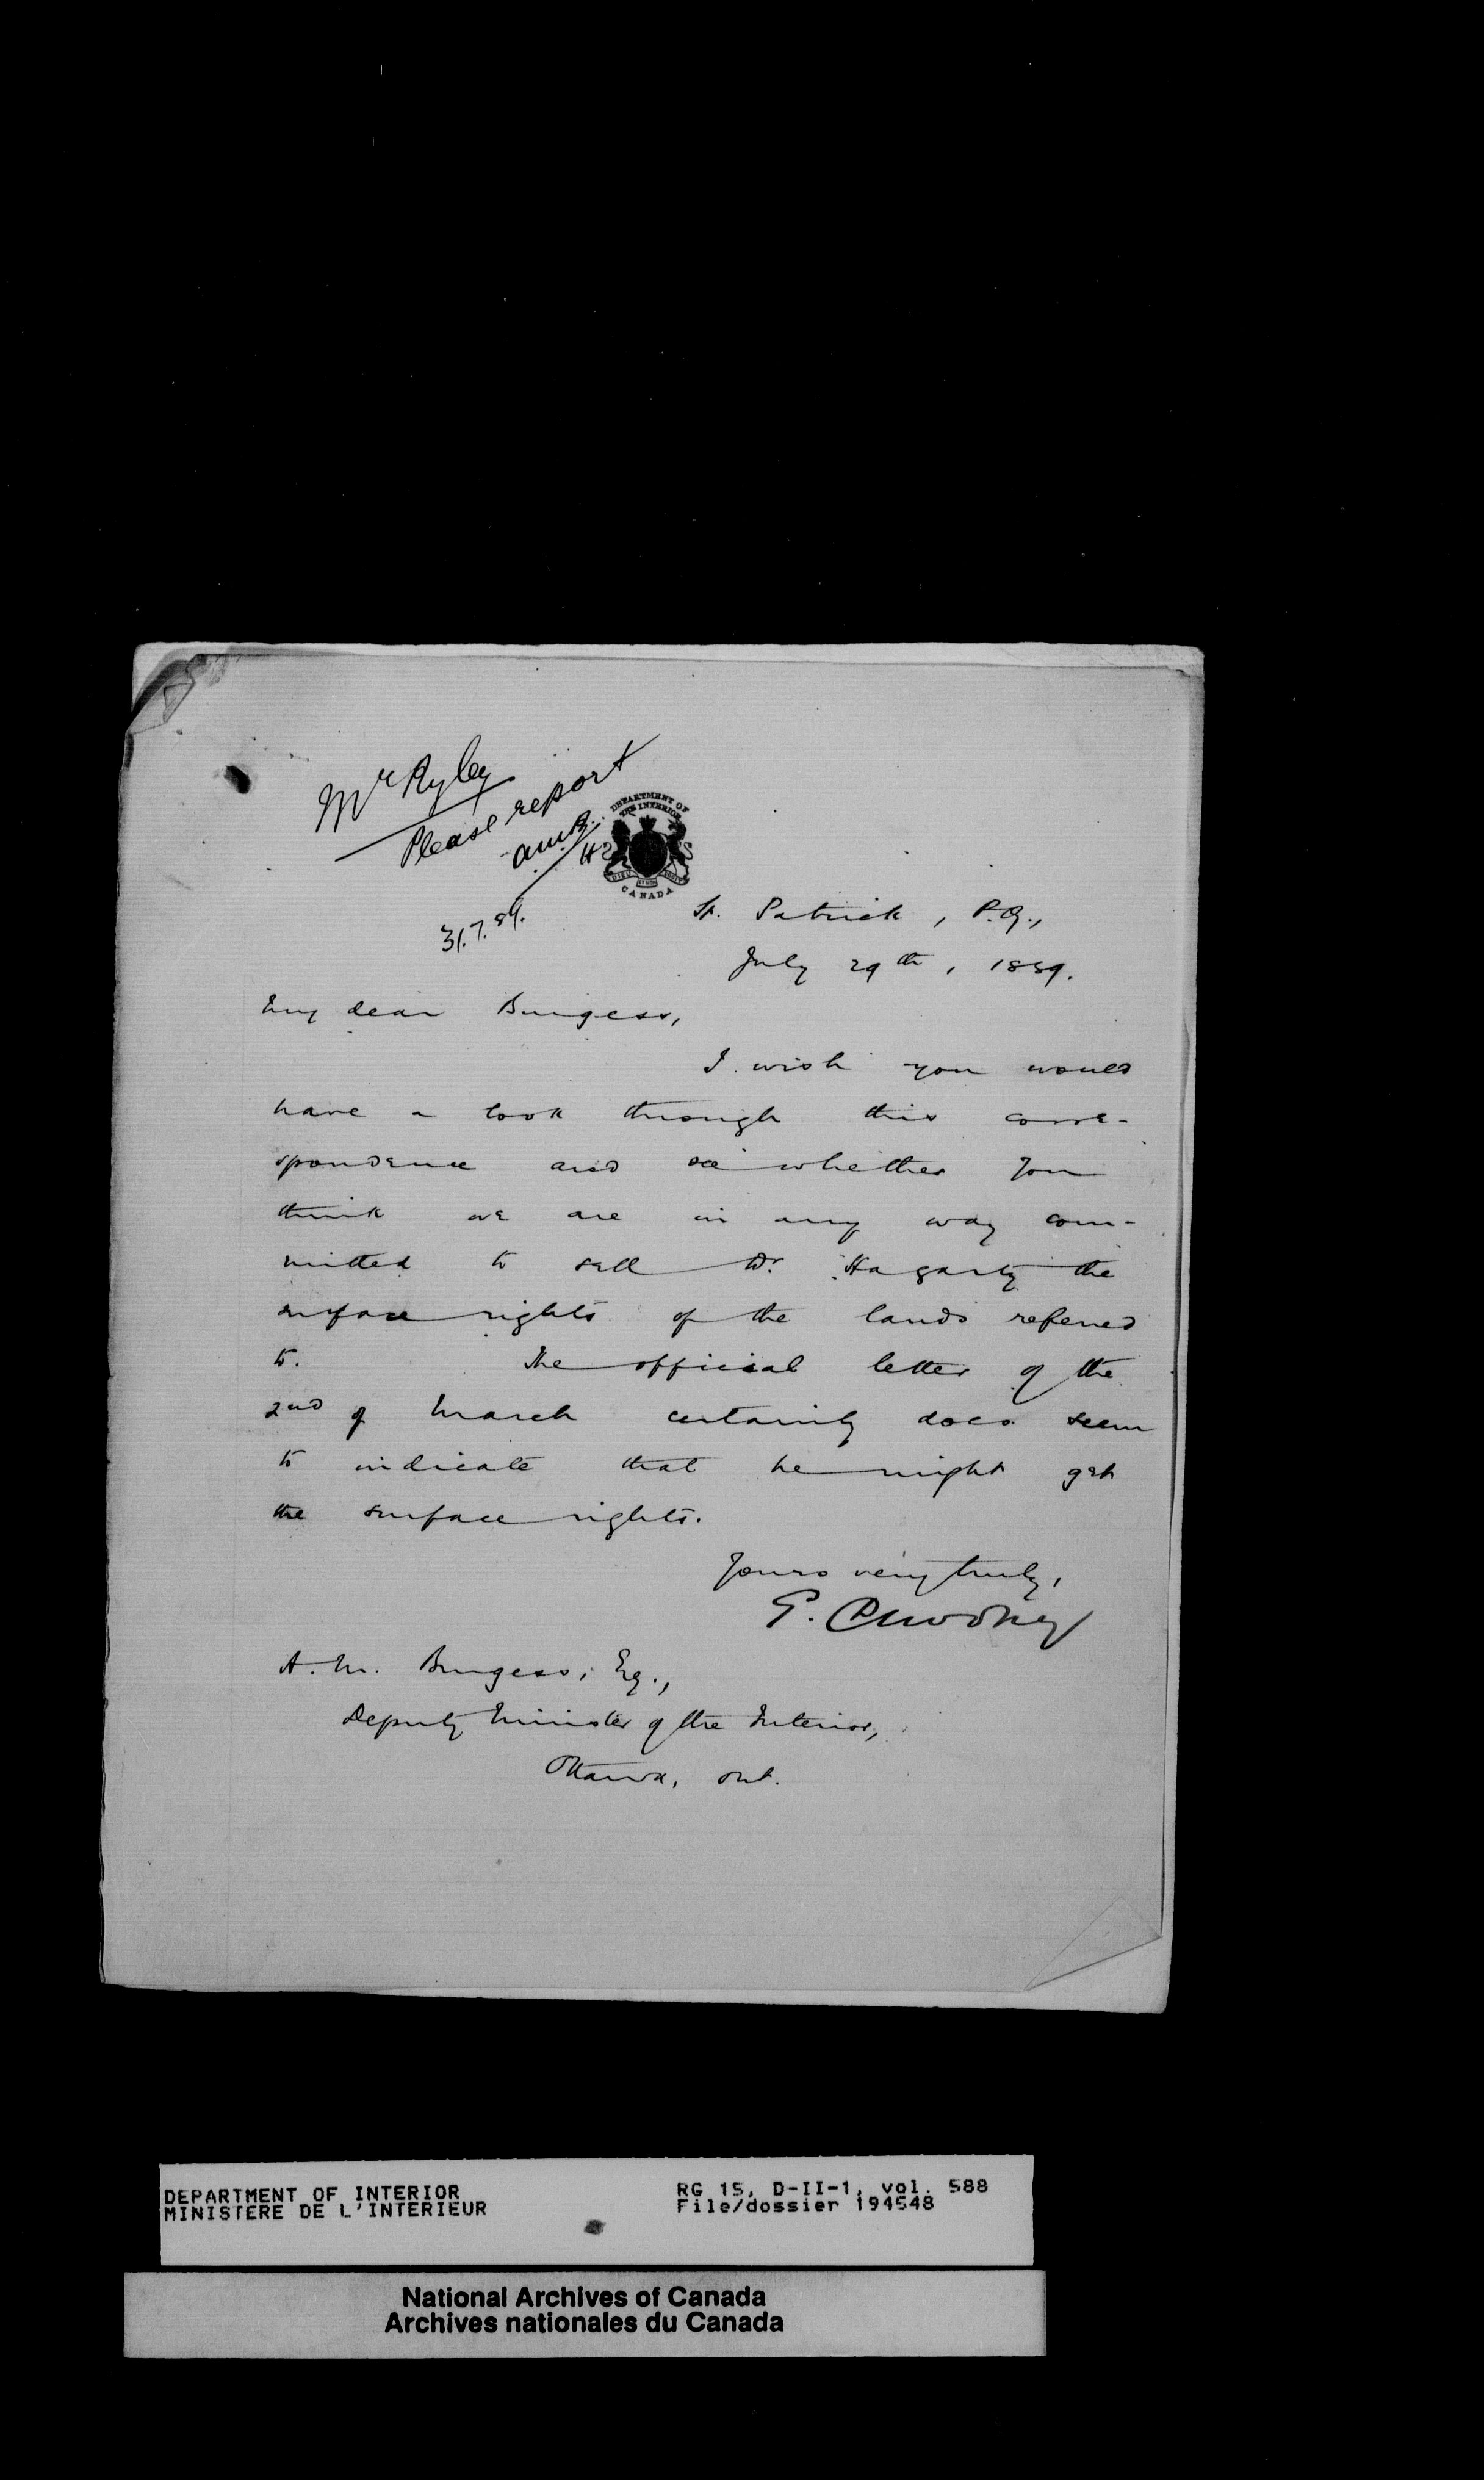 Mr Ryley
Please report
A.M.B.
31.7.89.
DEPARTMENT OF
THE INTERIOR
CANADA
St. Patrick, P.Q.,
July 29th, 1889.
My dear Burgess,
I wish you would
have a look through this corre-
spondence and see whether you
think we are in any way com-
mitted to sell Dr. Hagarty the
surface rights of the lands referred
to. The official letter of the
2nd of March certainly does seem
to indicate that he might get
the surface rights.
Yours very truly,
E. Dewdney
A. M. Burgess, Esq.,
Deputy Minister of the Interior,
Ottawa, Ont.
DEPARTMENT OF INTERIOR
MINISTERE DE L'INTERIEUR
RG 15, D-II-1, vol. 588
File/dossier 194548
National Archives of Canada
Archives nationales du Canada